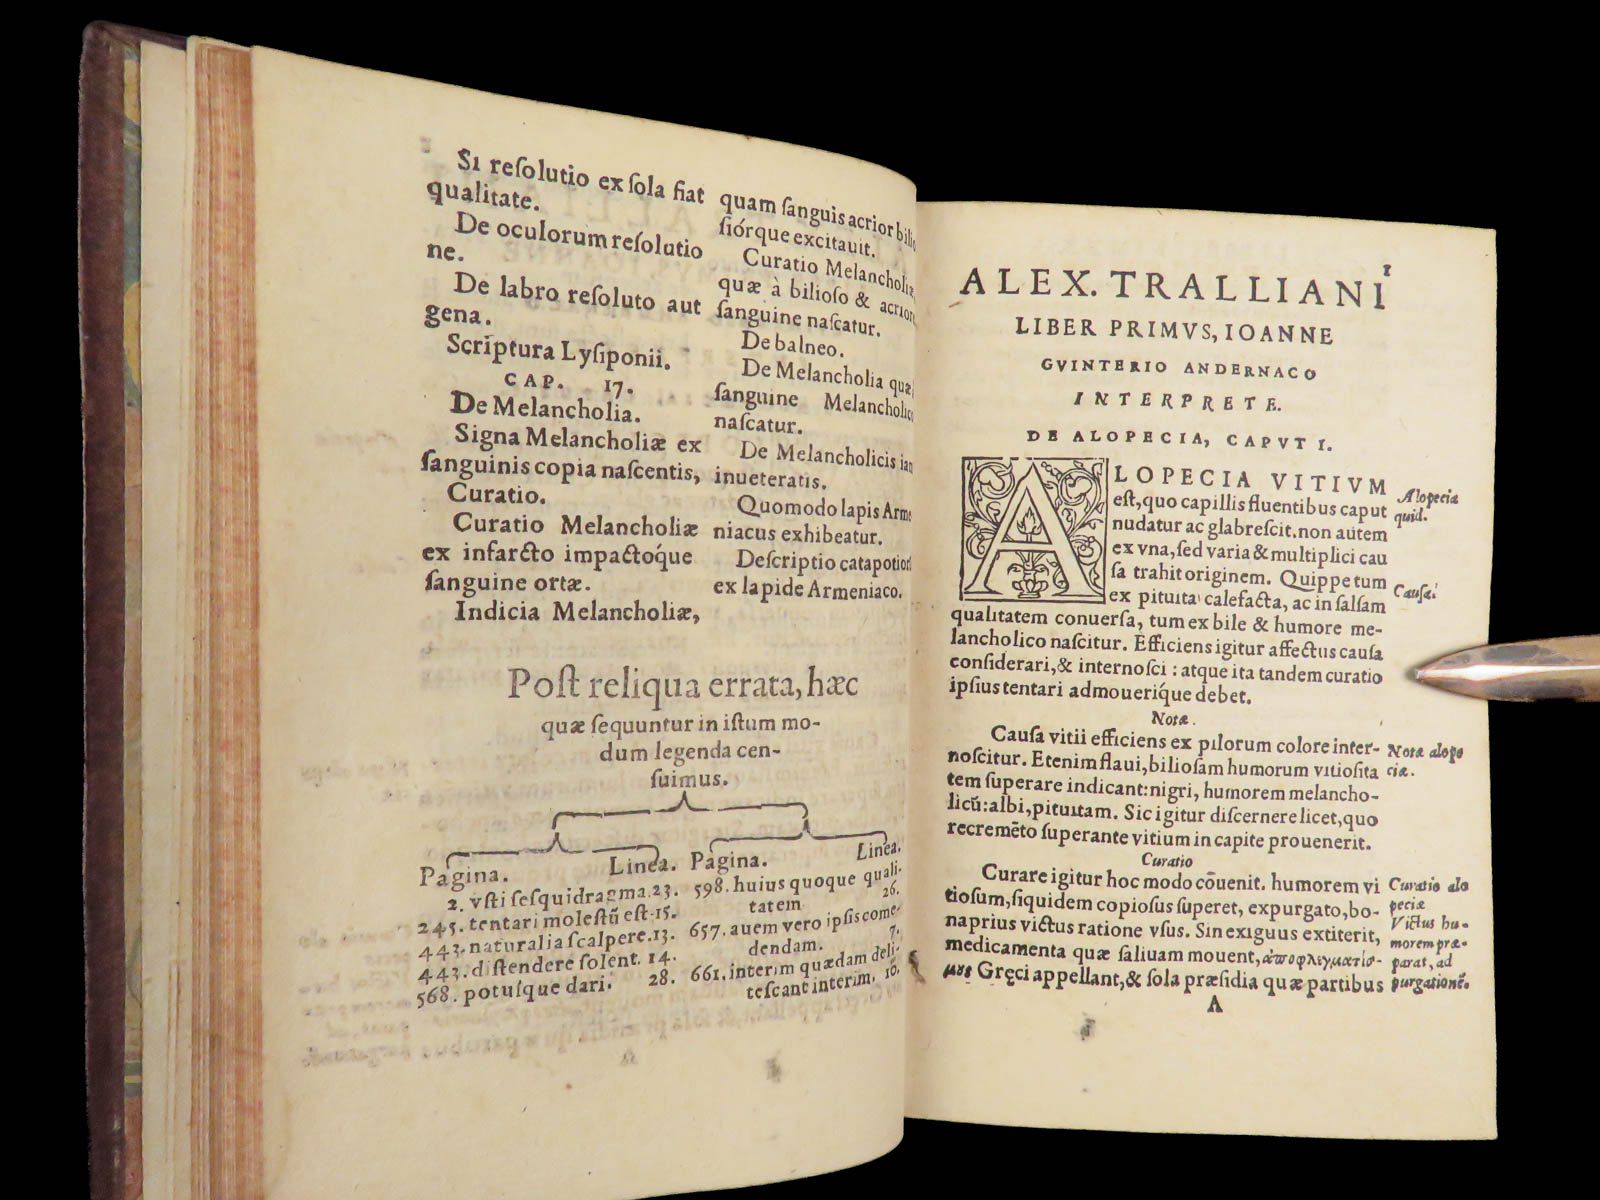 Si reſolutio ex ſola fiat
qualitate.
De oculorum reſolutio
ne.
De labro reſoluto aut
gena.
Scriptura Lyſiponii.
CAP. 17.
De Melancholia.
Signa Melancholiæ ex
ſanguinis copia naſcentis,
Curatio.
Curatio Melancholiæ
ex infarcto impactoq́ue
ſanguine ortæ.
Indicia Melancholiæ,
quam ſanguis acrior bili
ſiórque excitauit.
Curatio Melancholiæ,
quæ à bilioſo & acriori
ſanguine naſcatur.
De balneo.
De Melancholia quæ
ſanguine Melancholico
naſcatur.
De Melancholicis iam
inueteratis.
Quomodo lapis Arme
niacus exhibeatur.
Deſcriptio catapotiorũ
ex lapide Armeniaco.
Poſt reliqua errata, hæc
quæ ſequuntur in iſtum mo-
dum legenda cen-
ſuimus.
Pagina. Linea. Pagina. Linea.
2. vſti ſeſquidragma. 23.
245. tentari moleſtũ eſt. 15.
443. naturalia ſcalpere. 13.
443. diſtendere ſolent. 14.
568. potuſque dari. 28.
598. huius quoque quali-
tatem 26.
657. auem vero ipſis come-
dendam. 7.
661. interim quædam deli-
teſcant interim, 10.
1
ALEX. TRALLIANI
LIBER PRIMVS, IOANNE
GVINTERIO ANDERNACO
INTERPRETE.
DE ALOPECIA, CAPVT I.
ALOPECIA VITIVM
eſt, quo capillis fluentibus caput
nudatur ac glabreſcit. non autem
ex vna, ſed varia & multiplici cau
ſa trahit originem. Quippe tum
ex pituita calefacta, ac in ſalſam
qualitatem conuerſa, tum ex bile & humore me-
lancholico naſcitur. Efficiens igitur affectus cauſa
conſiderari, & internoſci : atque ita tandem curatio
ipſius tentari admoueriq́ue debet.
Notæ.
Cauſa vitii efficiens ex pilorum colore inter-
noſcitur. Etenim flaui, bilioſam humorum vitioſita
tem ſuperare indicant: nigri, humorem melancho-
licũ: albi, pituitam. Sic igitur diſcernere licet, quo
recremẽto ſuperante vitium in capite prouenerit.
Curatio
Curare igitur hoc modo cõuenit. humorem vi
tioſum, ſiquidem copioſus ſuperet, expurgato, bo-
naprius victus ratione vſus. Sin exiguus extiterit,
medicamenta quæ ſaliuam mouent, ἀποφλεγματισ-
μοὺς Gręci appellant, & ſola præſidia quæ partibus
A
Alopecia
quid.
Cauſæ.
Notæ alope
ciæ.
Curatio alo
peciæ
Victus hu-
morem præ-
parat, ad
purgationẽ.